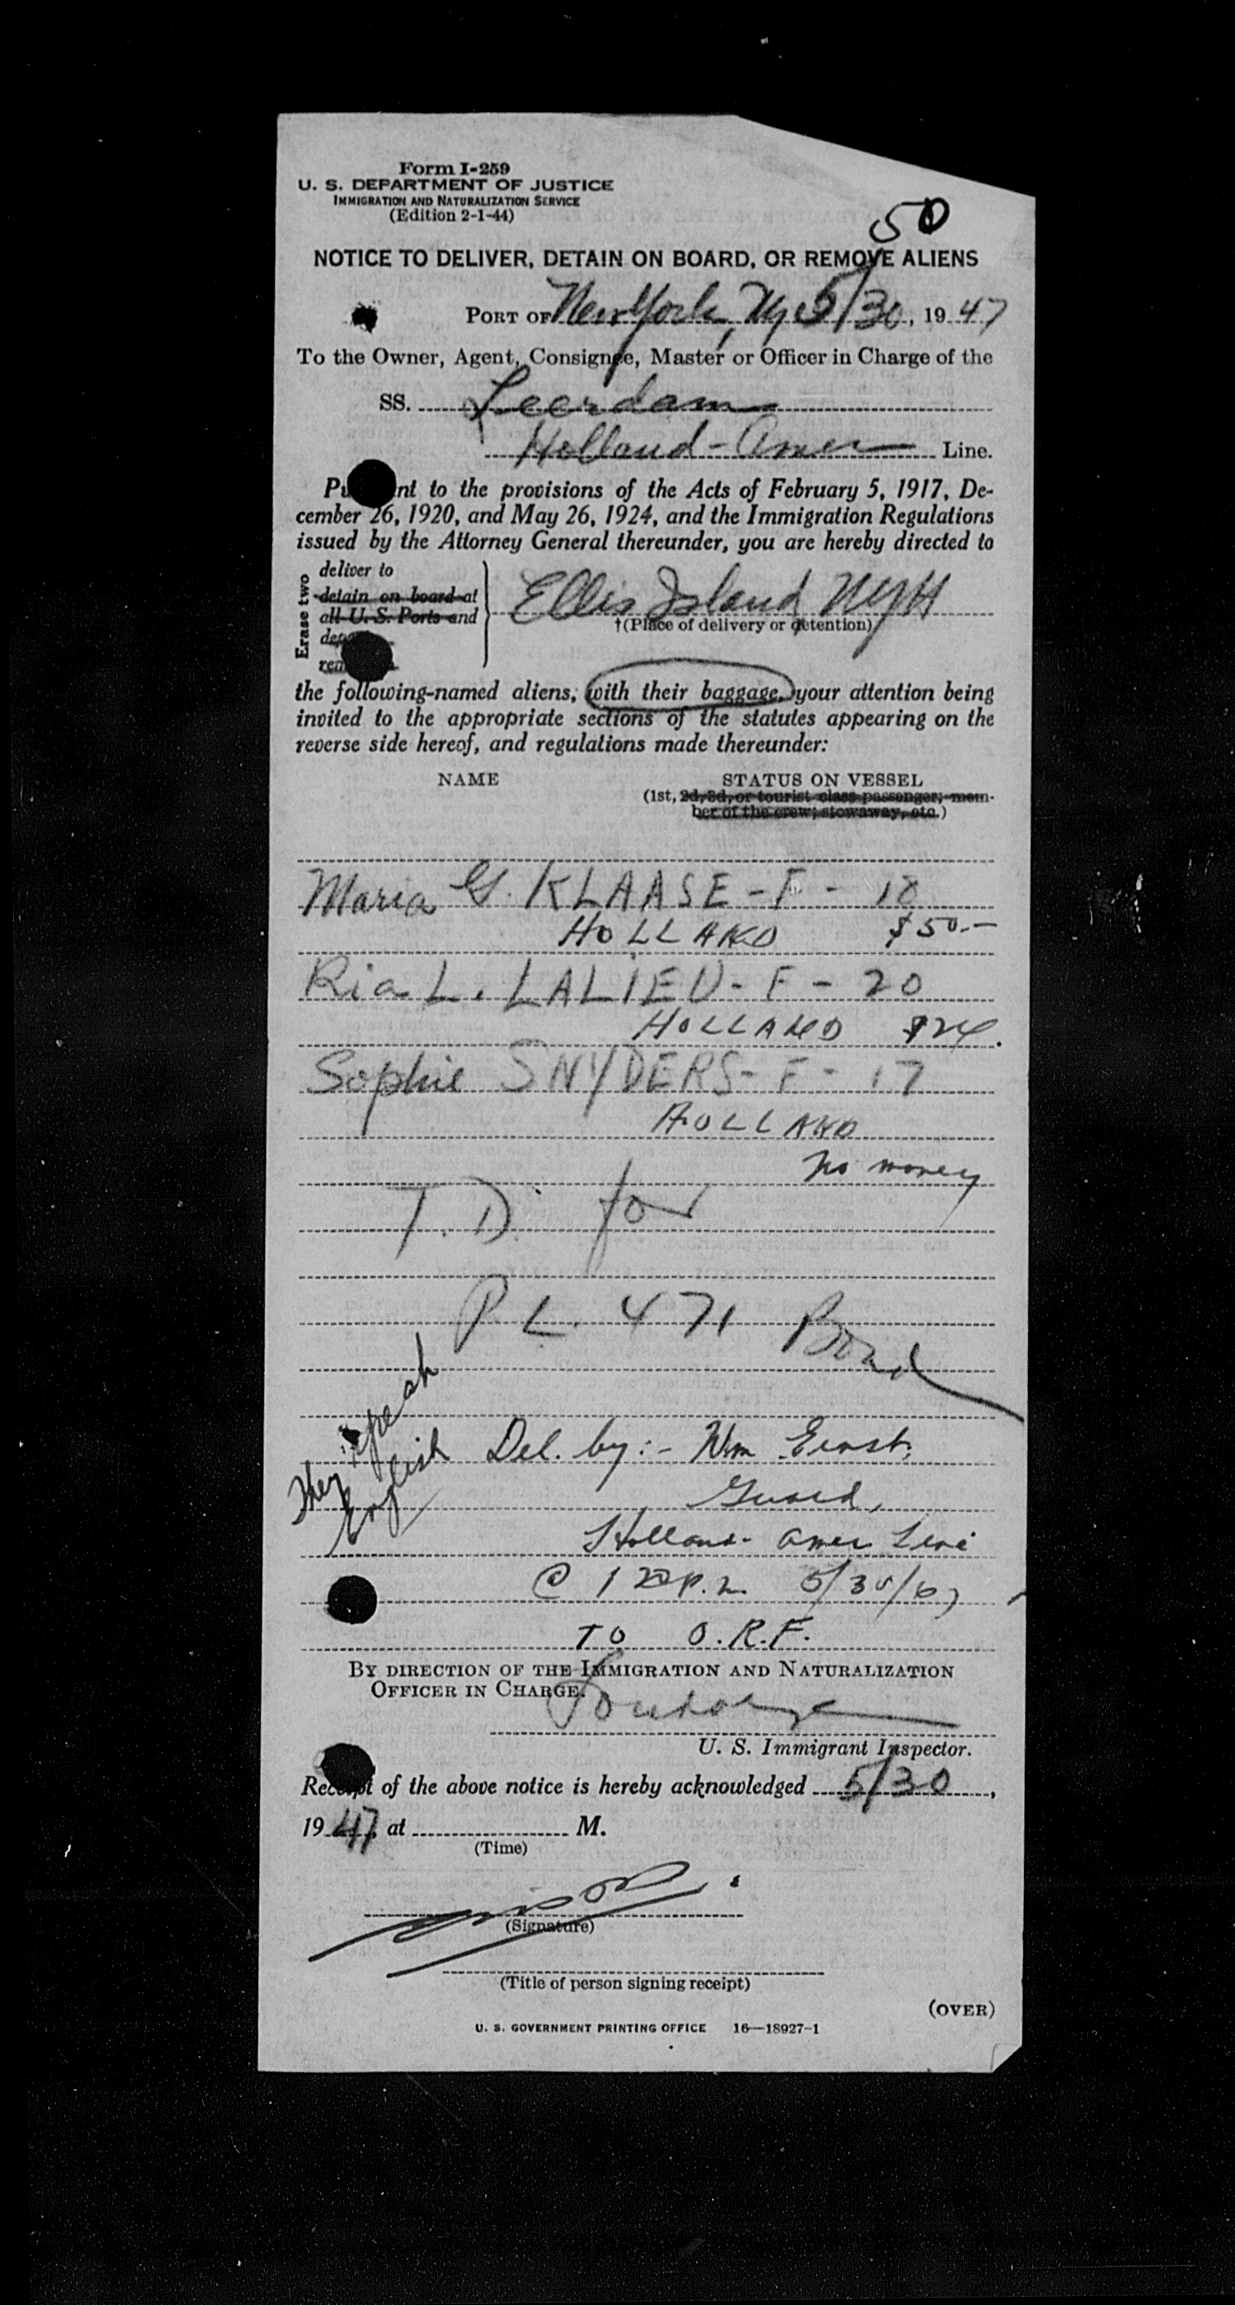 Form I-259
U. S. DEPARTMENT OF JUSTICE
IMMIGRATION AND NATURALIZATION SERVICE
(Edition 2-1-44)
50
NOTICE TO DELIVER, DETAIN ON BOARD, OR REMOVE ALIENS
PORT OF New York, NY 5/30, 1947
To the Owner, Agent, Consignee, Master or Officer in Charge of the
SS. Leerdam
Holland-Amer Line.
Pu nt to the provisions of the Acts of February 5, 1917, De-
cember 26, 1920, and May 26, 1924, and the Immigration Regulations
issued by the Attorney General thereunder, you are hereby directed to
Erase two
deliver to
detain on board at
all U. S. Ports and
Ellis Island NYH
†(Place of delivery or detention)
the following-named aliens, with their baggage, your attention being
invited to the appropriate sections of the statutes appearing on the
reverse side hereof, and regulations made thereunder:
NAME STATUS ON VESSEL
(1st, 2d, 3d, or tourist class passenger; mem-
ber of the crew; stowaway, etc.)
Maria G. KLAASE - F - 18
HOLLAND $50.-
Ria L. LALIEU - F - 20
HOLLAND $24.
Sophie SNYDERS - F - 17
HOLLAND
no money
T.D. for
P.L. 471 Bond
They speak
English
Del. by:- Wm Ernst,
Guard,
Holland-Amer Line
@ 1 20 P.M. 5/30/47
TO O.R.F.
BY DIRECTION OF THE IMMIGRATION AND NATURALIZATION
OFFICER IN CHARGE.
U. S. Immigrant Inspector.
Receipt of the above notice is hereby acknowledged 5/30,
1947, at M.
(Time)
(Signature)
(Title of person signing receipt)
(OVER)
U. S. GOVERNMENT PRINTING OFFICE 16—18927-1